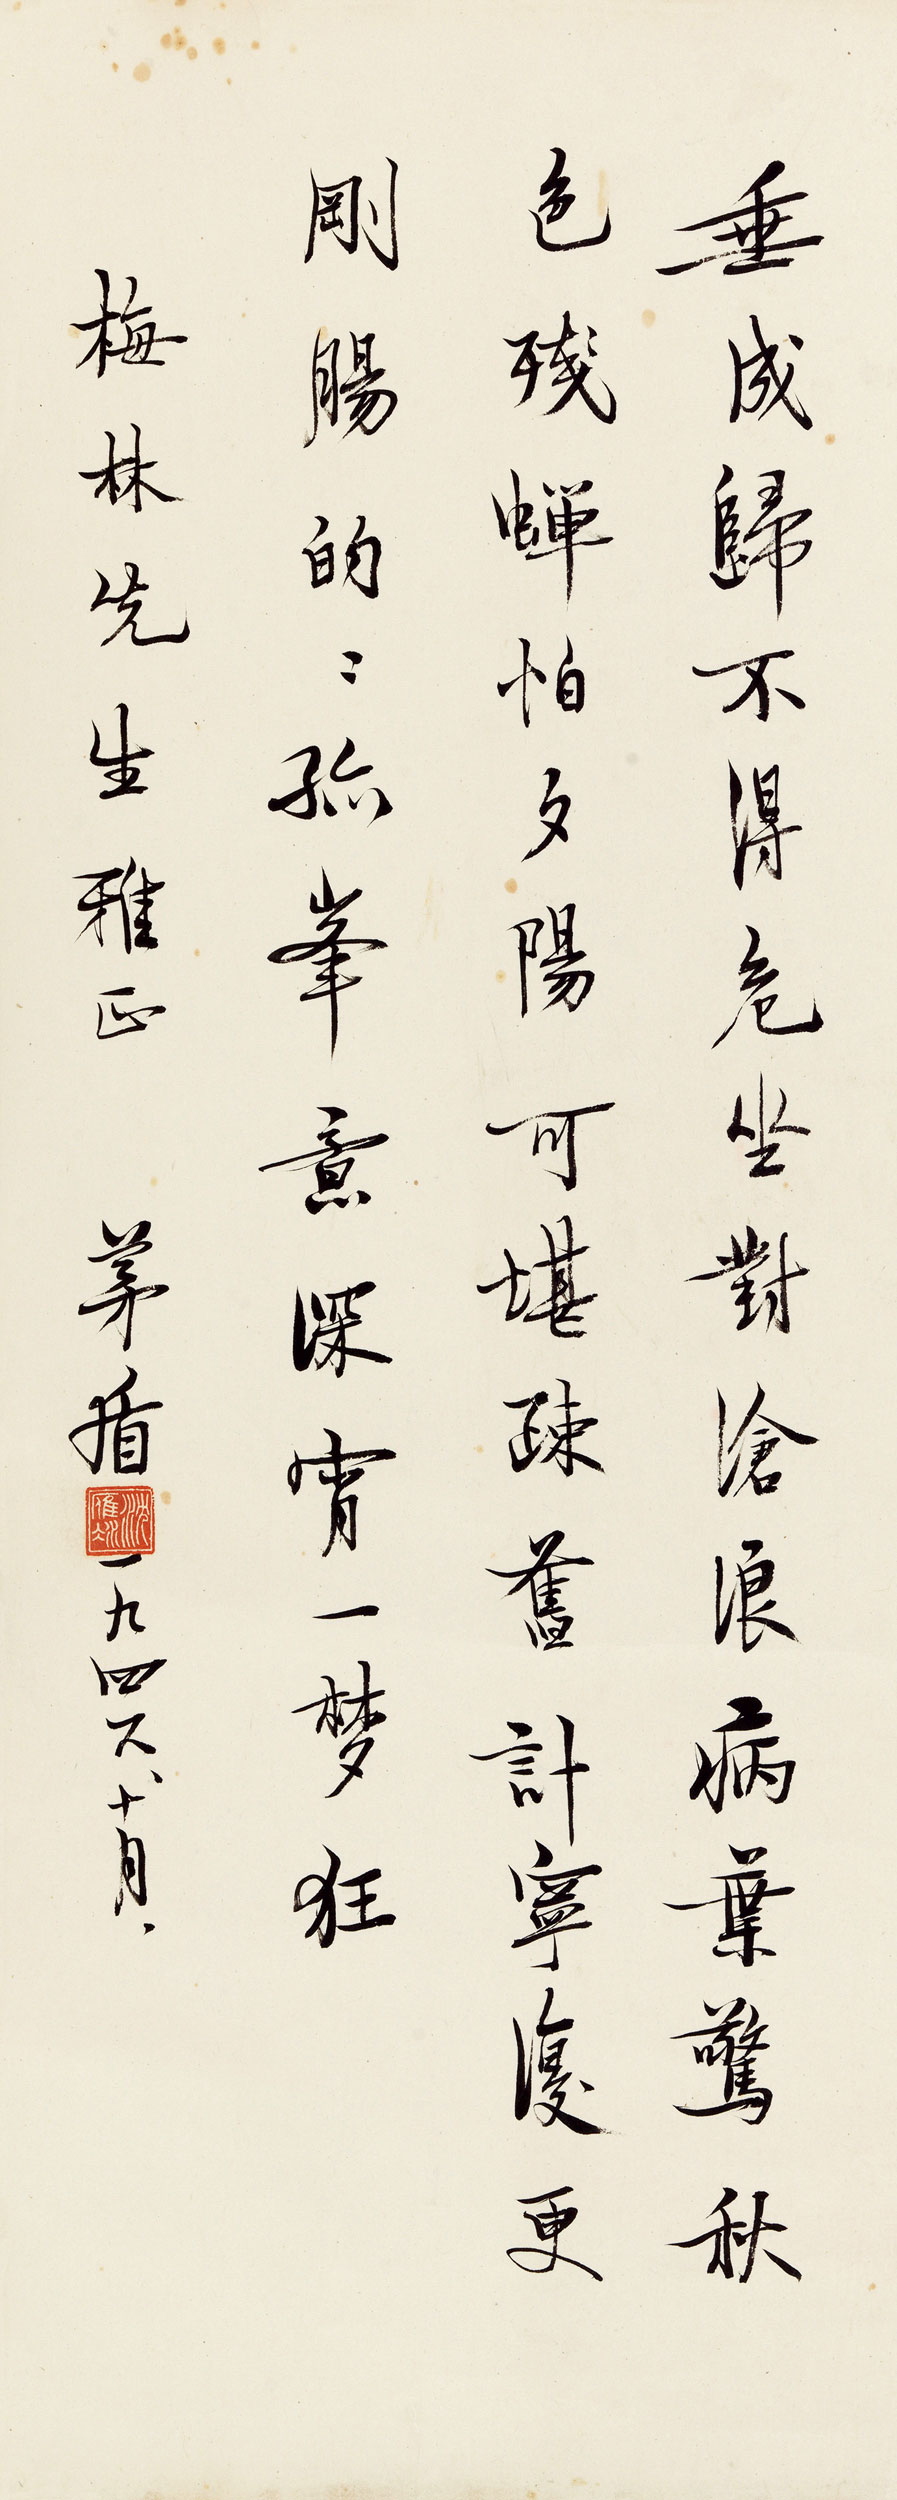 垂成歸不得危坐對滄浪病葉驚秋
色殘蟬怕夕陽可堪疎舊計寧復更
剛腸的〻孤峯意深宵一夢狂
梅林先生雅正 茅盾
一九四六、十月、
沈雁冰